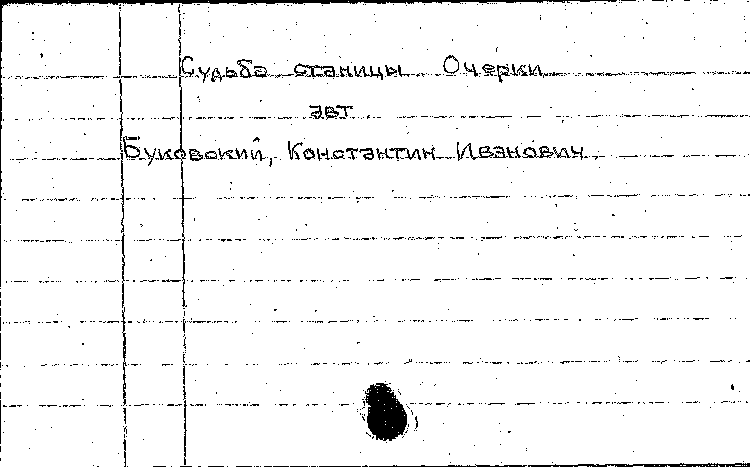 Судьба станицы Очерки
авт
Буковский, Константин Иванович